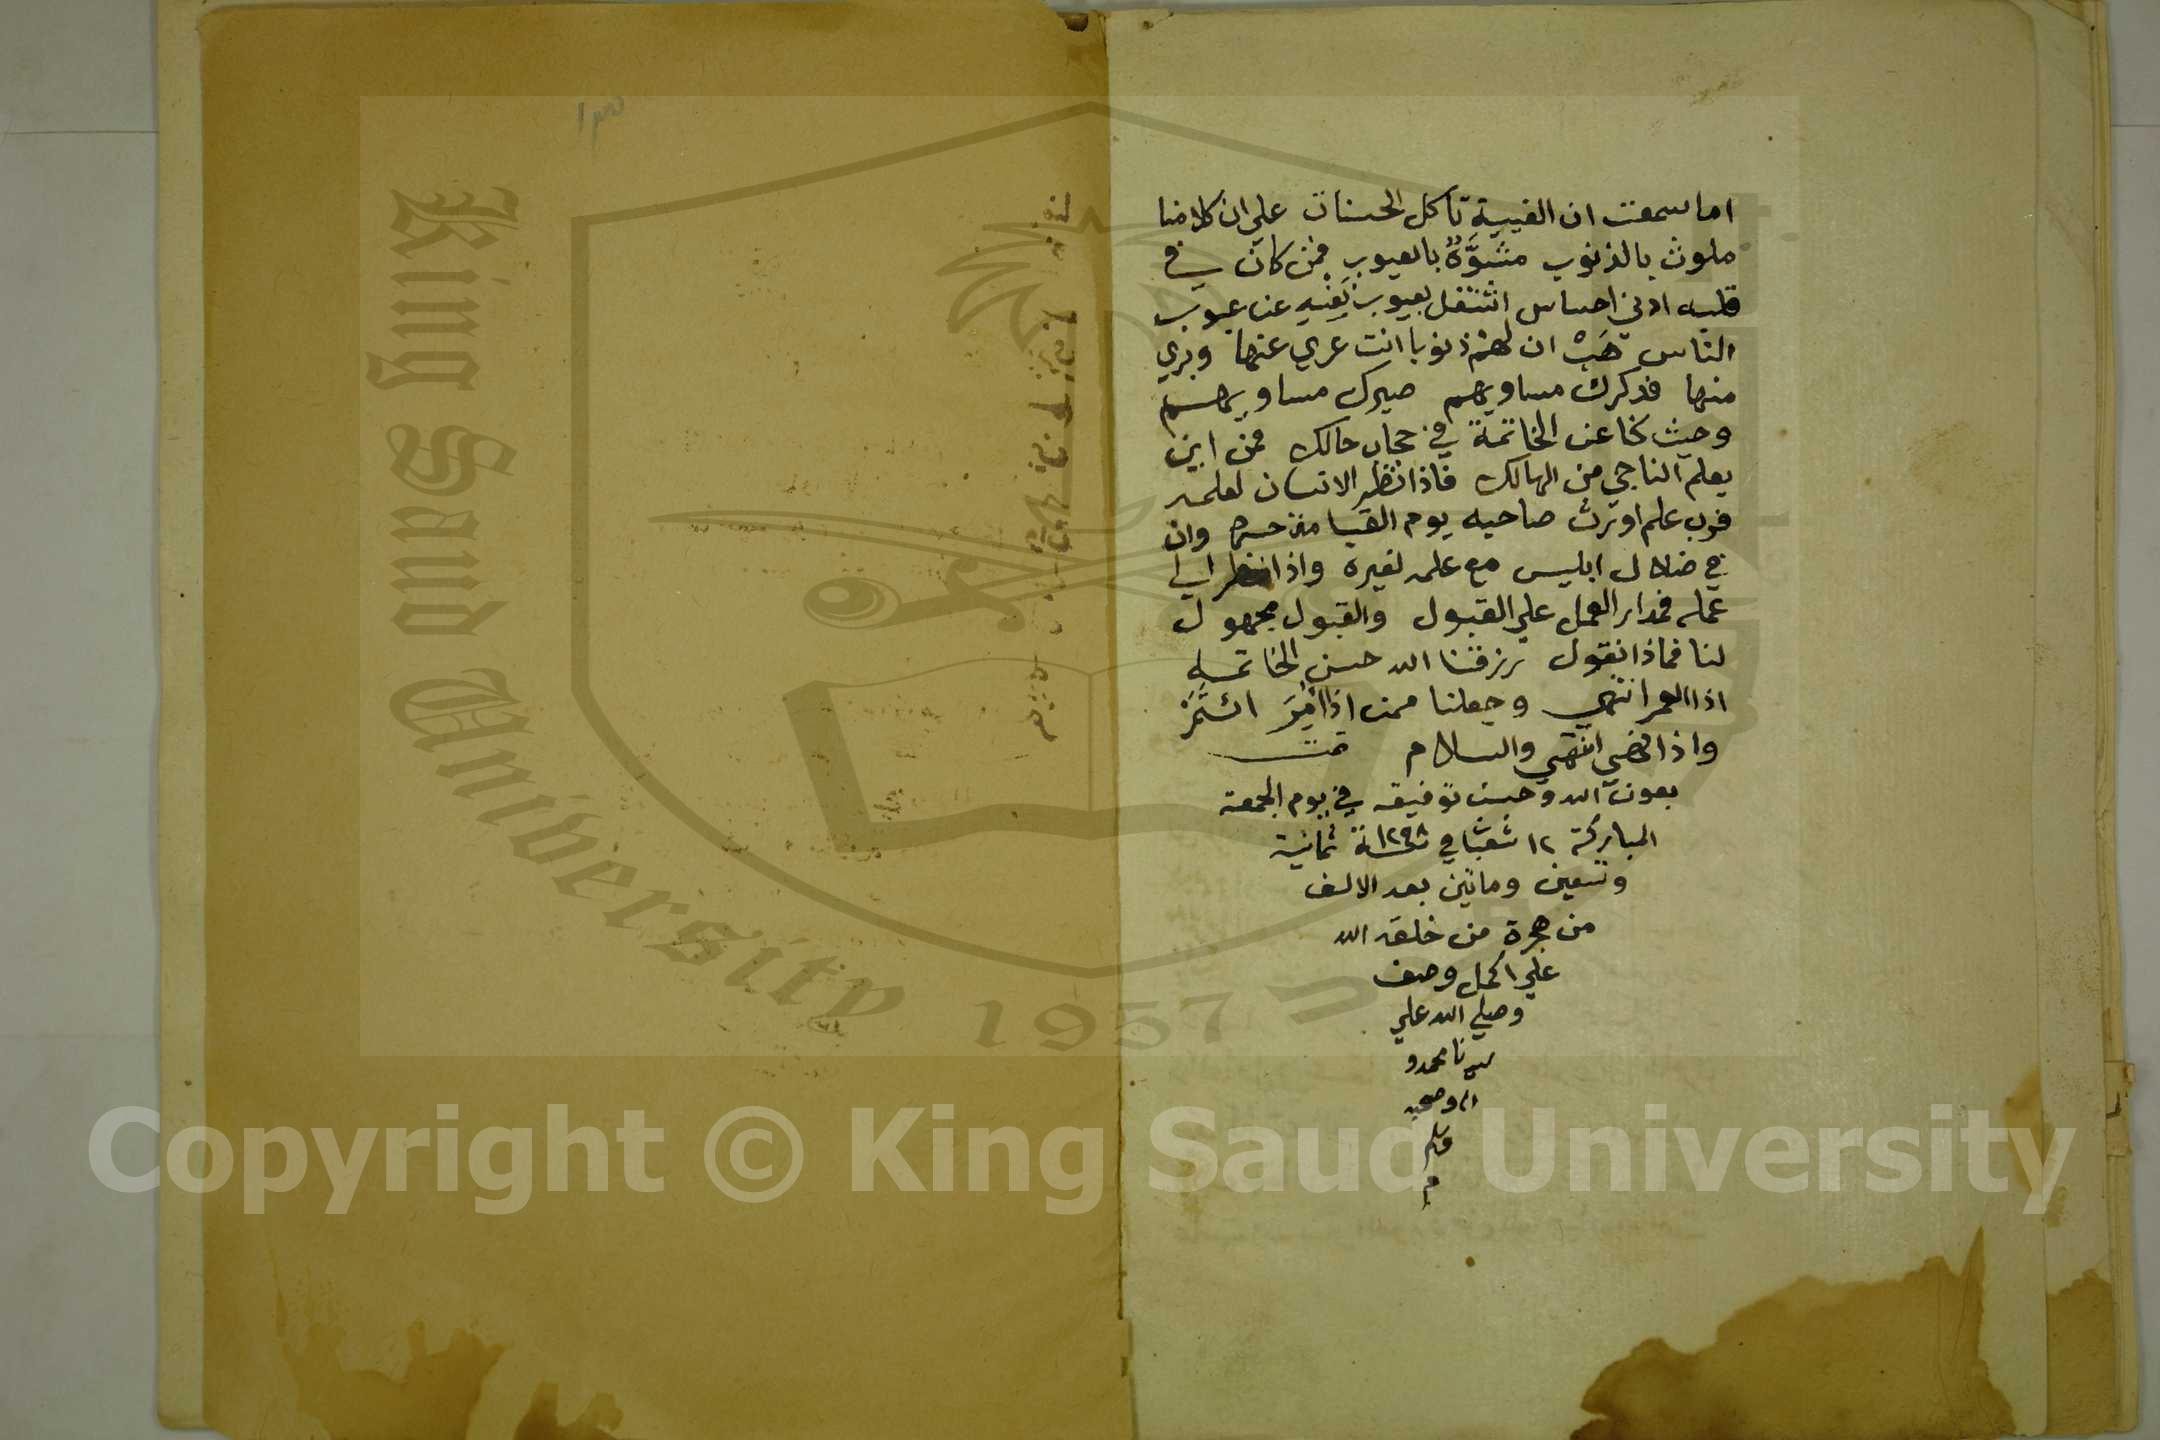 اما سمعت ان الغيبة تأكل الحسنات علي ان كلا منا
ملوث بالذنوب مشوَّهٌ بالعيوب فمن كان في
قلبه ادني احساس اشتغل بعيوب نفسه عن عيوب
الناس هَبْ ان لهم ذنوبا انت عري عنها وبري
منها فذكرك مساويهم صيرك مساويهم
وحيث كنا عن الخاتمة في حجاب حالك فمن اين
يعلم الناجي من الهالك فاذا نظر الانسان لعلمه
فرب علم اورث صاحبه يوم القيامة حسرة وان
في ضلال ابليس مع علمه لغيره واذا نظر الي
عمله فمدار العمل علي القبول والقبول مجهول
لنا فماذا نقول رزقنا الله حسن الخاتمه
اذا العمر انتهي وجعلنا ممن اذا اُمِرَ ائتَمَرَ
واذا نهي انتهي والسلام تمت
بعون الله وحسن توفيقه في يوم الجمعة
المباركة ١٢ شعبان في سنة ١٢٩٨ ثمانية
وتسعين ومائتين بعد الالف
من هجرة من خلقه الله
علي اكمل وصف
وصلي الله علي
سيدنا محمد و
اله وصحبه
وسلم
م
King Saud University
1957
Copyright © King Saud University